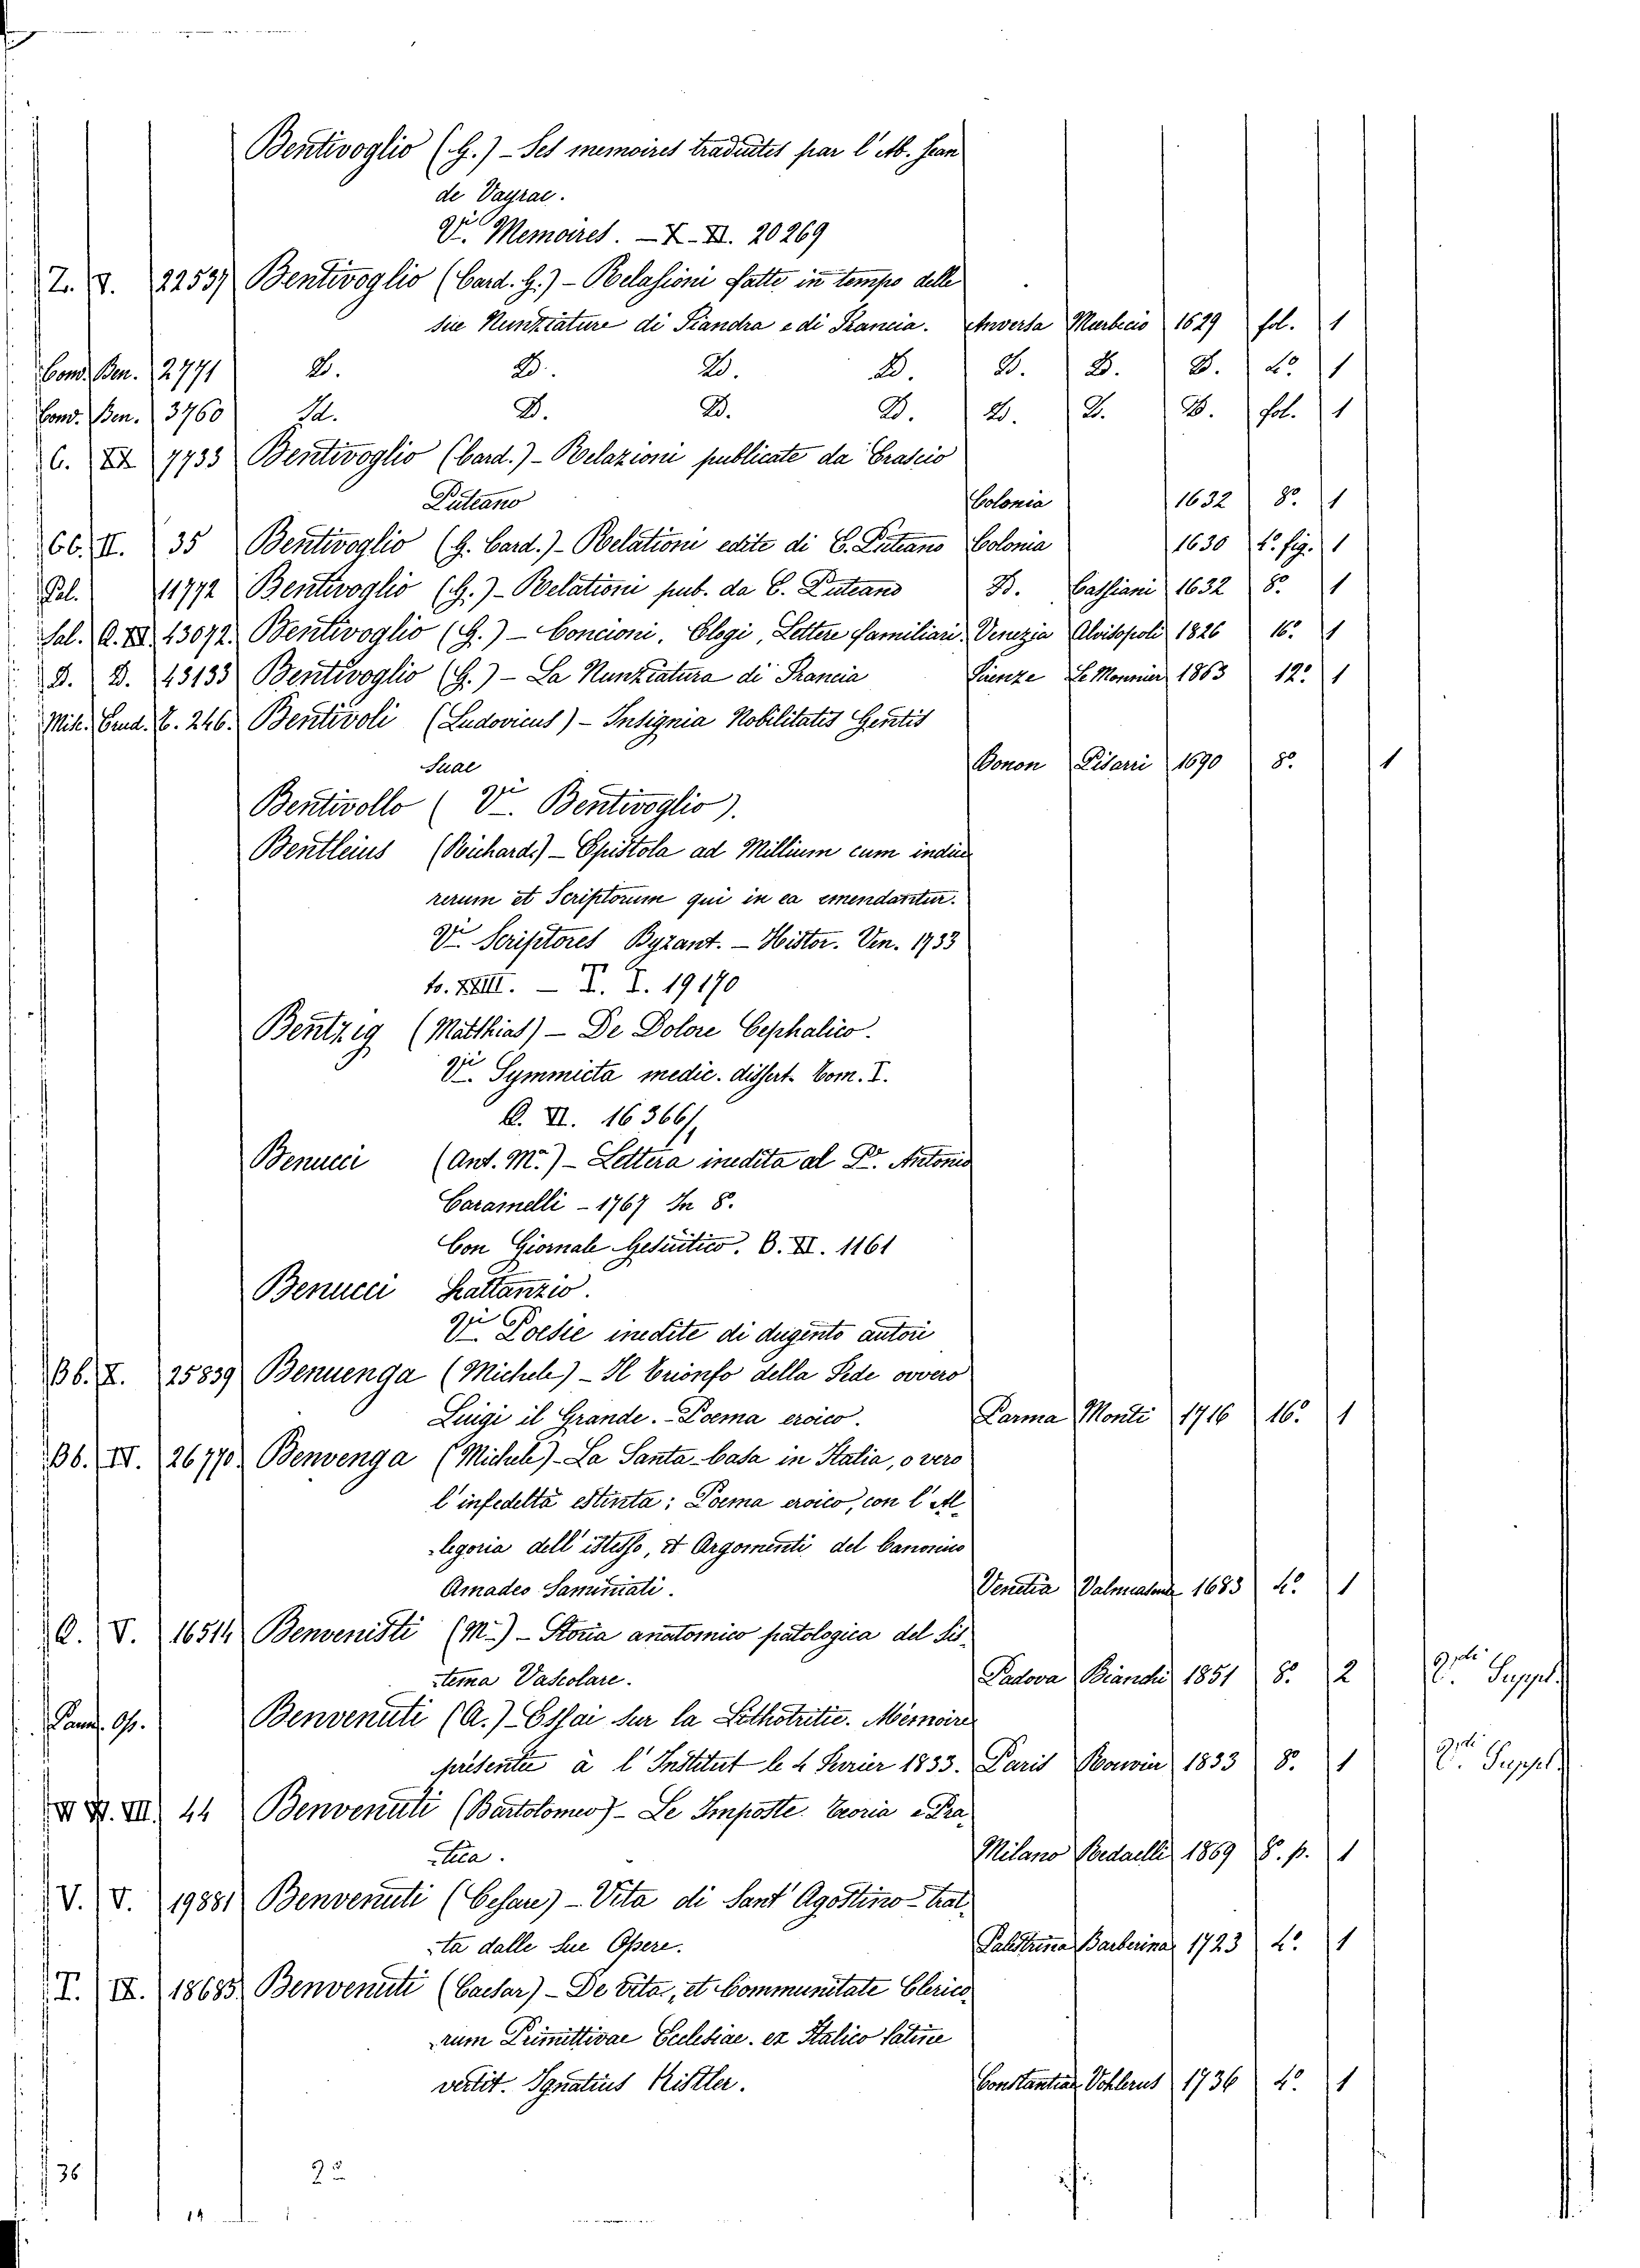 Bentivoglio (G.) - Ses memoires traduites par l'Ab. Jean
de Vayrac.
Vi. Memoires. - X. XI. 20269
Z. V. 22537 Bentivoglio (Card. G.) - Relasioni fatte in tempo delle
sue Nunziature di Fiandra e di Francia. Anversa Meerbecio 1629 fol. 1
Cond. Ben. 2771 D. D. D. D. D. D. D. 4º 1
Cond. Ben. 3760 Id. D. D. D. D. D. D. fol. 1
C. XI 7733 Bentivoglio (Card.) - Relazioni publicate da Erascio
Puteano Colonia 1632 8º 1
Cc. II. 35 Bentivoglio (G. Card.) - Relationi edite di E. Puteano Colonia 1630 4º fig. 1
Pal. 11772 Bentivoglio (G.) - Relationi pub. da E. Puteano B. Cassiani 1632 8º 1
Sal. Q. XI. 43072. Bentivoglio (G.) - Concioni, Elogi, Lettere familiari. Venezia Alvisopoli 1826 16º 1
D. D. 43133 Bentivoglio (G.) - La Nunziatura di Francia Firenze Le Monnier 1863 12º 1
Mis. Erud. C. 246. Bentivoli (Ludovicus) - Insignia Nobilitatis Gentis
Suae Bonon Pisarri 1690 8º 1
Bentivollo (Vi. Bentivoglio).
Bentleius (Richard.) - Epistola ad Millium cum indice
rerum et Scriptorum qui in ea emendantur.
Vi. Scriptores Byzant. - Histor. Ven. 1733
to. XXIII. - T. I. 19170
Bentzig (Matthias) - De Dolore Cephalico.
Vi. Symmicta medic. dissert. Tom. I.
Q. VI. 16366/1
Benucci (Ant. Mª.) - Lettera inedita al Dr. Antonio
Caramelli - 1767 In 8.
Con Giornale Gesuitico. B. XI. 1161
Benucci Lattanzio.
Vi. Poesie inedite di dugento autori
Bb. X. 25839 Benuenga (Michele) - Il Trionfo della Fede ovvero
Luigi il Grande. - Poema eroico. Parma Monti 1716 16º 1
Bb. IV. 26770. Benvenga (Michele) - La Santa-Casa in Italia, o vero
l'infedeltà estinta; Poema eroico, con l'Al-
legoria dell'istesso, et Argomenti del Canonico
Amadeo Saminiati. Venetia 1683 4º 1
Q. V. 16514 Benvenisti (M.) - Storia anatomico patologica del Sis-
tema Vascolare. Padova Bianchi 1851 8º 2 Suppl.
Pann. Op. Benvenuti (A.) - Essai sur la Lithotritie. Mémoire
présentée à l'Institut le 4 Fevrier 1833. Paris 1833 8º 1 Suppl.
VII 44 Benvenuti (Bartolomeo) - Le Imposte. Teoria e Pra-
tica. Milano Redaelli 1869 8º. p. 1
V. V. 19881 Benvenuti (Cesare) - Vita di Sant'Agostino trat-
ta dalle sue Opere. Palestrina Barberina 1723 4º 1
T. IX. 18685 Benvenuti (Caesar) - De Vita, et Communitate Clerico-
rum Primittivae Ecclesiae. ex Italico latine
vertit. Ignatius Kistler. Constantiae 1736 4º 1
36
14